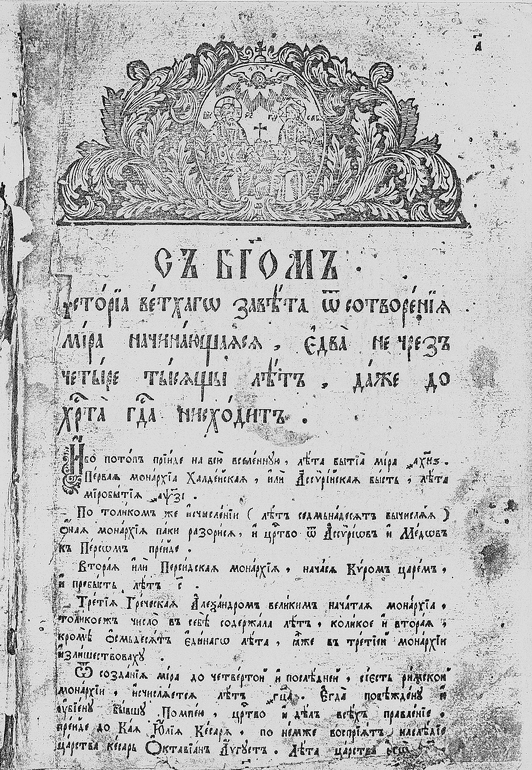 а҃
СЪ БГ҃ОМЪ .
Їсто́рїа ве́тхагѡ завѣ́та ѿ сотворе́нїѧ
мі́ра начина́ющаѧсѧ , є҆два̀ не чрезъ
четы́ре ты́сѧщы лѣ́тъ , да́же до
хрⷭ҇та̀ гдⷭ҇а нисхо́дитъ .
И҆́бо пото́пъ прїи́де на всю̀ вселе́ннꙋю , лѣ́та бытїѧ̀ мі́ра
Пе́рваѧ мона́рхїа Халде́йскаѧ , и҆лѝ А҆ссѷрі́йскаѧ бы́сть , лѣ́та
міробытїѧ̀
По толи́комъ же и҆счисле́нїи ( лѣ́тъ седмьна́десѧтъ вычислѧ́ѧ )
ѻ҆́наѧ мона́рхїа па́ки разори́сѧ , и҆ црⷭ҇тво ѿ А҆ссѷрі́ѡвъ и҆ Ми́дѡвъ
къ Пе́рсѡмъ прїи́де .
Втора́ѧ и҆лѝ Персі́дскаѧ мона́рхїа , нача́сѧ Кѵ́ромъ царе́мъ ,
и҆ пребы́сть лѣ́тъ
Тре́тїѧ Гре́ческаѧ А҆леѯа́ндромъ вели́кимъ нача́таѧ мона́рхїа ,
толи́коежъ число̀ въ себѣ̀ содержа́ла лѣ́тъ , коли́кое и҆ втора́ѧ ,
кромѣ̀ ѻ҆смьдесѧ́тъ є҆ди́нагѡ лѣ́та , ꙗ҆̀же въ тре́тїей мона́рхїи
и҆зли́шествовахꙋ .
Ѿ созда́нїѧ мі́ра до четве́ртой и҆ послѣ́дней , сїе́сть ри́мской
мона́рхїи , и҆счислѧ́етсѧ лѣ́тъ . Е҆гда̀ побѣжде́нꙋ и҆
ᲂу҆бїе́нꙋ бы́вшꙋ Помпе́ю , црⷭ҇тво и҆ дѣ́лъ всѣ́хъ правле́нїе
прїи́де до Ка́ѧ І҆ꙋ́лїѧ Ке́сарѧ , по не́мже воспрїѧ́тъ наслѣ́дїе
ца́рства ке́сарь Ѻ҆ктавїа́нъ А҆́ѵгꙋстъ . Лѣ́та ца́рства